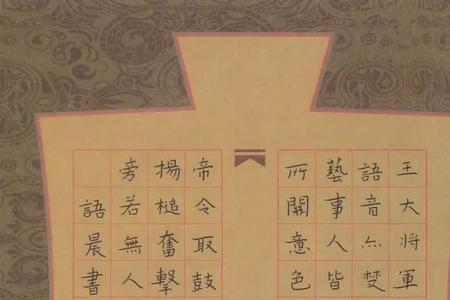 王大將軍
語音亦楚
藝事人皆
所關意色
帝令取鼓
揚槌奮擊
旁若無人
語晨書